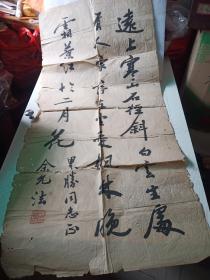 遠上寒山石徑斜白雲生處
有人家停車坐愛楓林晚
霜葉紅於二月花
果勝同志正
余元法